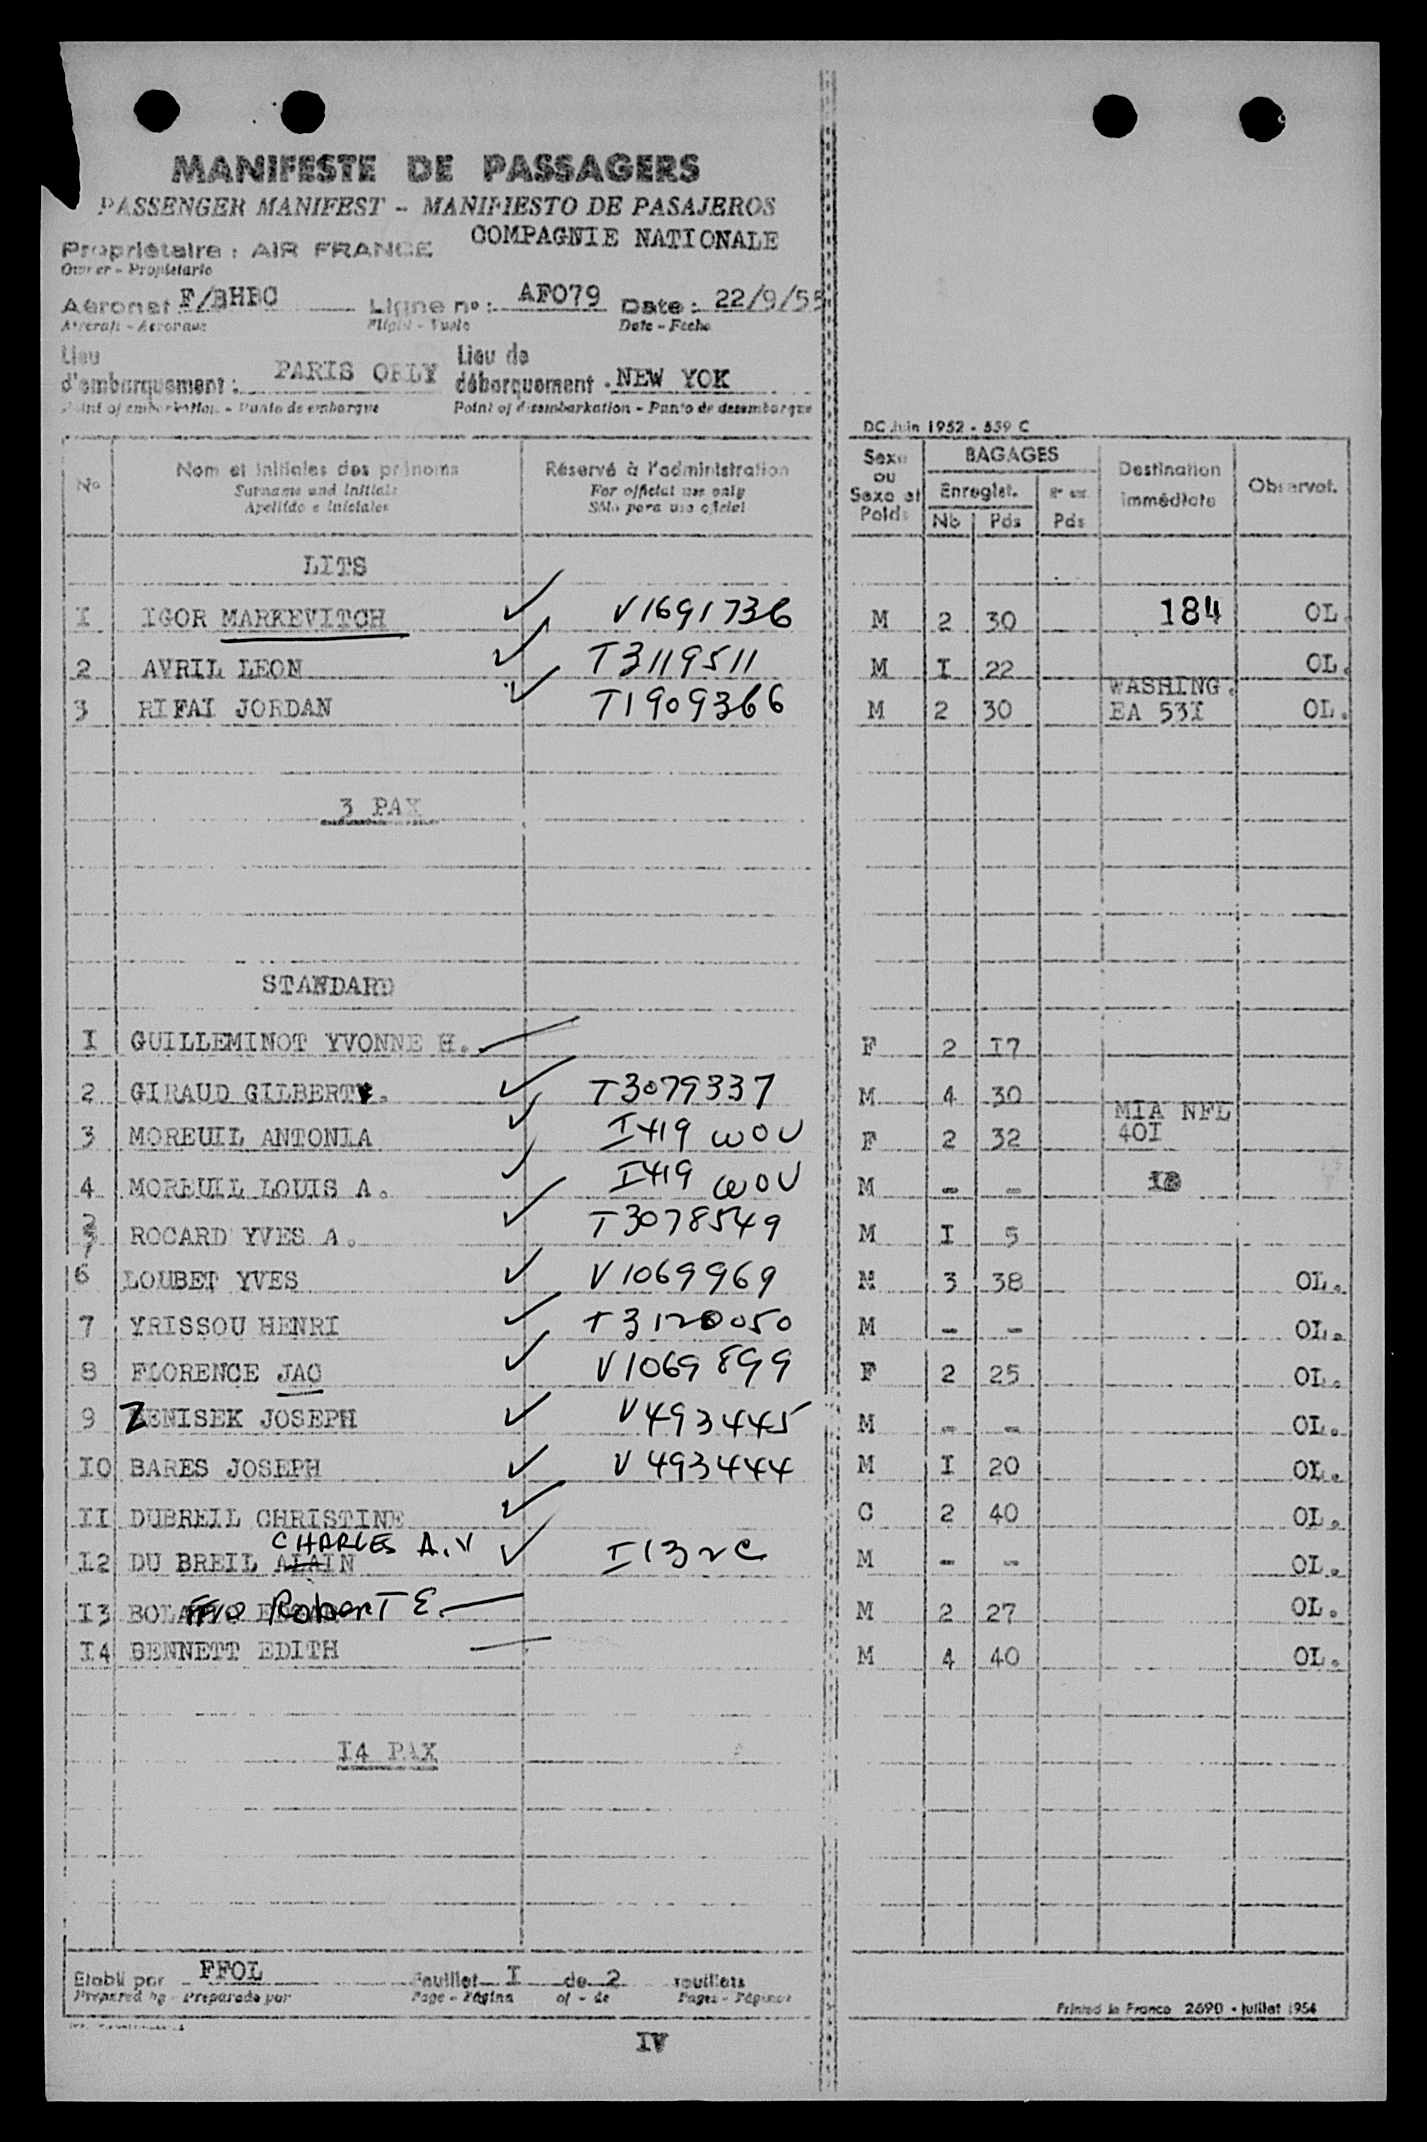 MANIFESTE DE PASSAGERS
PASSENGER MANIFEST - MANIFIESTO DE PASAJEROS
Propriétaire : AIR FRANCE COMPAGNIE NATIONALE
Owner - Propietario
Aéronef F/BHBC Ligne nº : AF079 Date : 22/9/55
Aircraft - Aeronave Flight - Vuelo Date - Fecha
Lieu d'embarquement : PARIS ORLY Lieu de débarquement . NEW YOK
Point of embarkation - Punto de embarque Point of disembarkation - Punto de desembarque
DC Juin 1952 - 559 C
No Nom et initiales des prénoms Réservé à l'administration Sexe ou Sexe et Poids BAGAGES Destination immédiate Observat.
Surname and initials For official use only Enregist. Nb Pds Pds
Apellido e iniciales Sólo para uso oficial
LITS
I IGOR MARKEVITCH V1691736 M 2 30 184 OL.
2 AVRIL LEON T3119511 M I 22 OL.
3 RIFAI JORDAN T1909366 M 2 30 WASHING. EA 53I OL.
3 PAX
STANDARD
I GUILLEMINOT YVONNE H. F 2 I7
2 GIRAUD GILBERT. T3079337 M 4 30
3 MOREUIL ANTONIA I419 WOV F 2 32 MIA NFL 40I
4 MOREUIL LOUIS A. I419 WOV M - -
ROCARD YVES A. T3078549 M I 5
6 LOUBET YVES V1069969 M 3 38 OL.
7 YRISSOU HENRI T3120050 M - - OL.
8 FLORENCE JAC V1069899 F 2 25 OL.
9 ZENISEK JOSEPH V493445 M - - OL.
IO BARES JOSEPH V493444 M I 20 OL.
II DUBREIL CHRISTINE C 2 40 OL.
CHARLES A.V
I2 DU BREIL ALAIN I132C M - - OL.
I3 Robert E. M 2 27 OL.
I4 BENNETT EDITH M 4 40 OL.
I4 PAX
Etabli par FFOL Feuillet I de 2 feuillets
Prepared by - Preparado por Page - Página of - de Pages - Páginas
Printed in France 2690 - Juillet 1954
IV